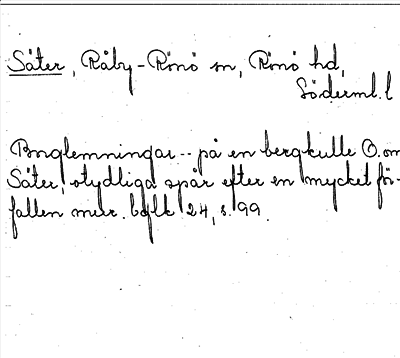 Säter, Råby-Rönö sn, Rönö hd,
Söderml. l
Borglemningar -- på en bergkulle O. om
Säter, otydliga spår efter en mycket för-
fallen mur. 24, s. 99.